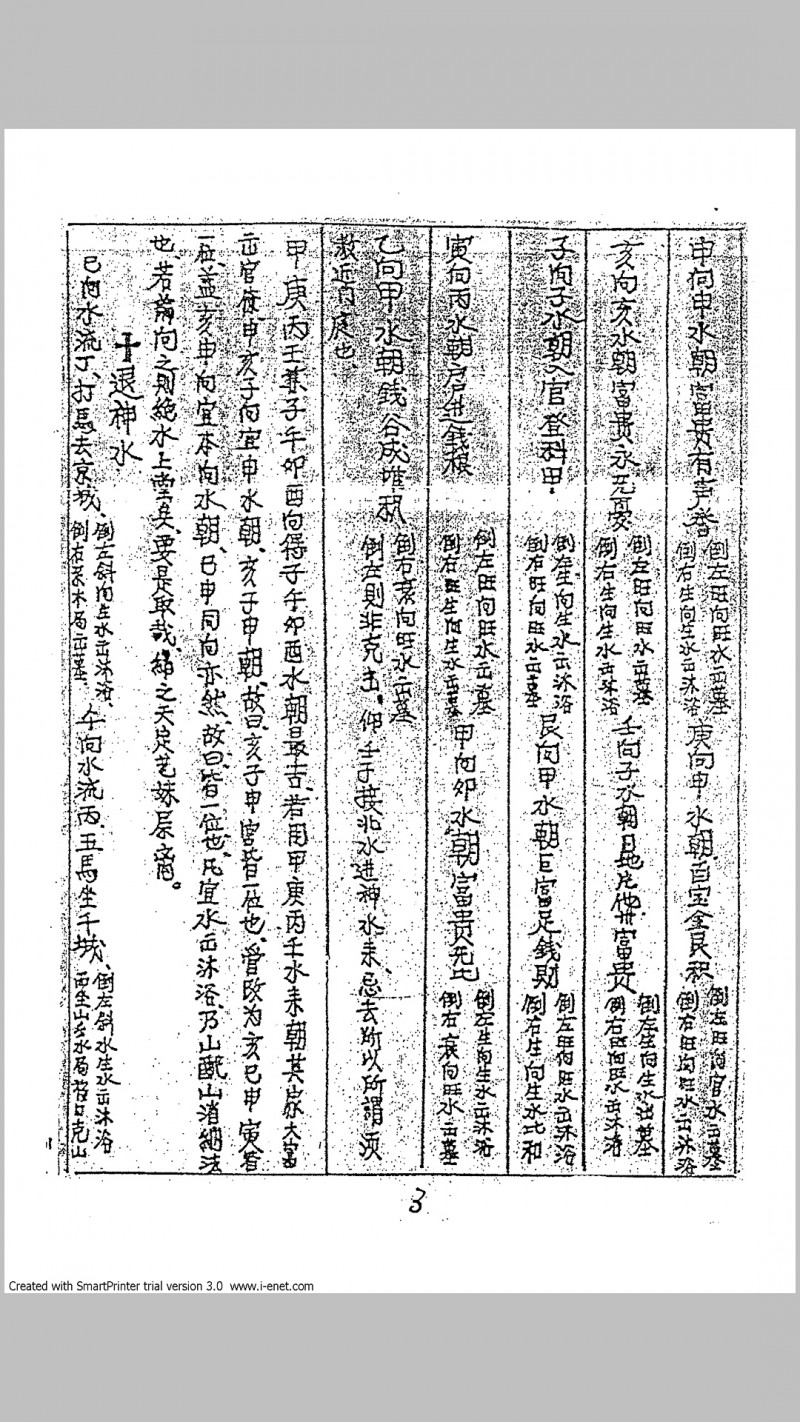 申向申水朝富贵有声誉 倒左旺向旺水出墓 倒右生向生水出沐浴 庚向申水朝百宝金良积 倒左旺向官水出墓 倒右旺向旺水出沐浴
亥向亥水朝富貴永无憂 倒左旺向旺水出墓 倒右生向生水出沐浴 壬向子水朝 富貴 倒左生向生水出墓 倒右旺向旺水出沐浴
子向子水朝入官登科甲 倒左生向生水出沐浴 倒右旺向旺水出墓 艮向甲水朝巨富足錢財 倒左旺向旺水出沐浴 倒右生向生水比和
寅向丙水朝户进錢粮 倒左旺向旺水出墓 倒右旺生向生水出墓 甲向卯水朝富貴无比 倒左生向生水出沐浴 倒右衰向旺水出墓
乙向甲水朝錢谷成堆积 倒右衰向旺水出墓 倒左則非克出、仰壬子接北水进神水耒、忌去所以所謂须
救近百庭也、
甲庚丙壬兼子午卯酉向得子午卯酉水朝最吉、若用甲庚丙壬水耒朝其家大富
出官使申亥子向宜申水朝、亥子申朝、故曰亥子申宫皆一位也、曾改为亥巳申寅者
一位、盖亥申向宜本向水朝、巳申同向亦然、故曰皆一位也、凡宜水出沐浴、乃山 山消納法
也、若論向之則絶水上堂矣、要是取哉、 之天定 。
十退神水
巳向水流丁、打馬去京城、 倒左斜向生水出沐浴、 倒右系木局出墓、 午向水流丙、五馬坐千城、 倒左斜水生水出沐浴 酉坐山 水局 克山
3
Created with SmartPrinter trial version 3.0 www.i-enet.com